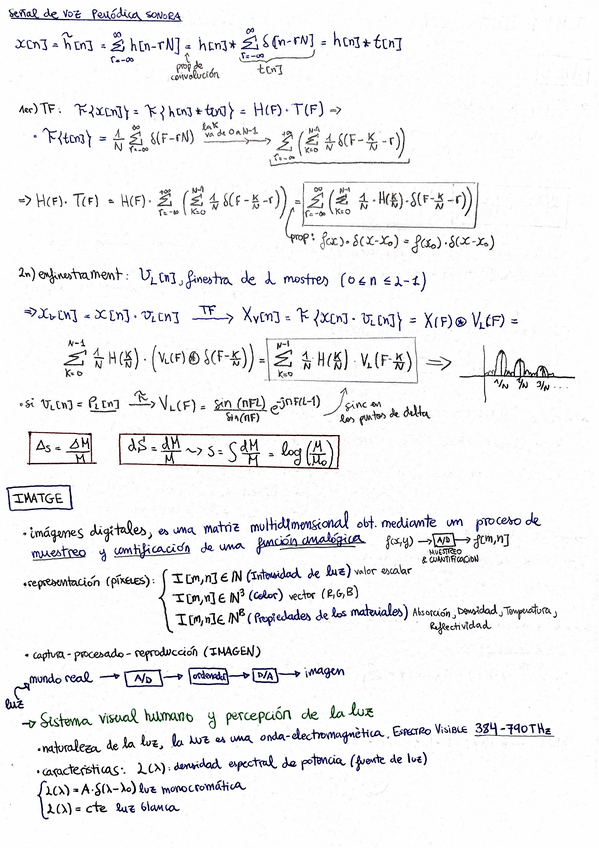 señal de voz Periódica SONORA
x[n] = h̃[n] = Σ_{r=-∞}^{∞} h[n-rN] = h[n] * Σ_{r=-∞}^{∞} δ[n-rN] = h[n] * t[n]
prop de convolución
t[n]
1er) TF: F{x[n]} = F{h[n] * t[n]} = H(F) · T(F) ⇒
• F{t[n]} = 1/N Σ_{r=-∞}^{∞} δ(F-rN) la K va de 0 a N-1 → Σ_{r=-∞}^{+∞} (Σ_{K=0}^{N-1} 1/N δ(F-K/N-r))
⇒ H(F) · T(F) = H(F) · Σ_{r=-∞}^{+∞} (Σ_{K=0}^{N-1} 1/N δ(F-K/N-r)) = Σ_{r=-∞}^{∞} (Σ_{K=0}^{N-1} 1/N · H(K/N) · δ(F-K/N-r))
prop: f(x) · δ(x-x₀) = f(x₀) · δ(x-x₀)
2n) enfinestrament: v_L[n], finestra de L mostres (0 ≤ n ≤ L-1)
⇒ x_v[n] = x[n] · v_L[n] TF → X_v[n] = F{x[n] · v_L[n]} = X(F) ⊛ V_L(F) =
Σ_{K=0}^{N-1} 1/N H(K/N) · (V_L(F) ⊛ δ(F-K/N)) = Σ_{K=0}^{N-1} 1/N · H(K/N) · V_L(F-K/N) ⇒
1/N 2/N 3/N ...
• si v_L[n] = P_L[n] F → V_L(F) = sin(πFL)/sin(πF) e^{-jπF(L-1)} sinc en los puntos de delta
Δs = ΔM/M dS = dM/M ⤳ S = ∫ dM/M = log(M/M₀)
IMATGE
• imágenes digitales, es una matriz multidimensional obt. mediante un proceso de
muestreo y cuantificación de una función analógica f(x,y) → A/D → f[m,n]
MUESTREO & CUANTIFICACIÓN
• representación (píxeles): { I[m,n] ∈ ℕ (Intensidad de luz) valor escalar
I[m,n] ∈ ℕ³ (Color) vector (R,G,B)
I[m,n] ∈ ℕᴮ (Propiedades de los materiales) Absorción, Densidad, Temperatura,
Reflectividad
• captura - procesado - reproducción (IMAGEN)
mundo real → A/D → ordenador → D/A → imagen
luz
→ Sistema visual humano y percepción de la luz
• naturaleza de la luz, la luz es una onda-electromagnètica, ESPECTRO VISIBLE 384-790THz
• características: L(λ): densidad espectral de potencia (fuente de luz)
{ L(λ) = A·δ(λ-λ₀) luz monocromática
L(λ) = cte luz blanca